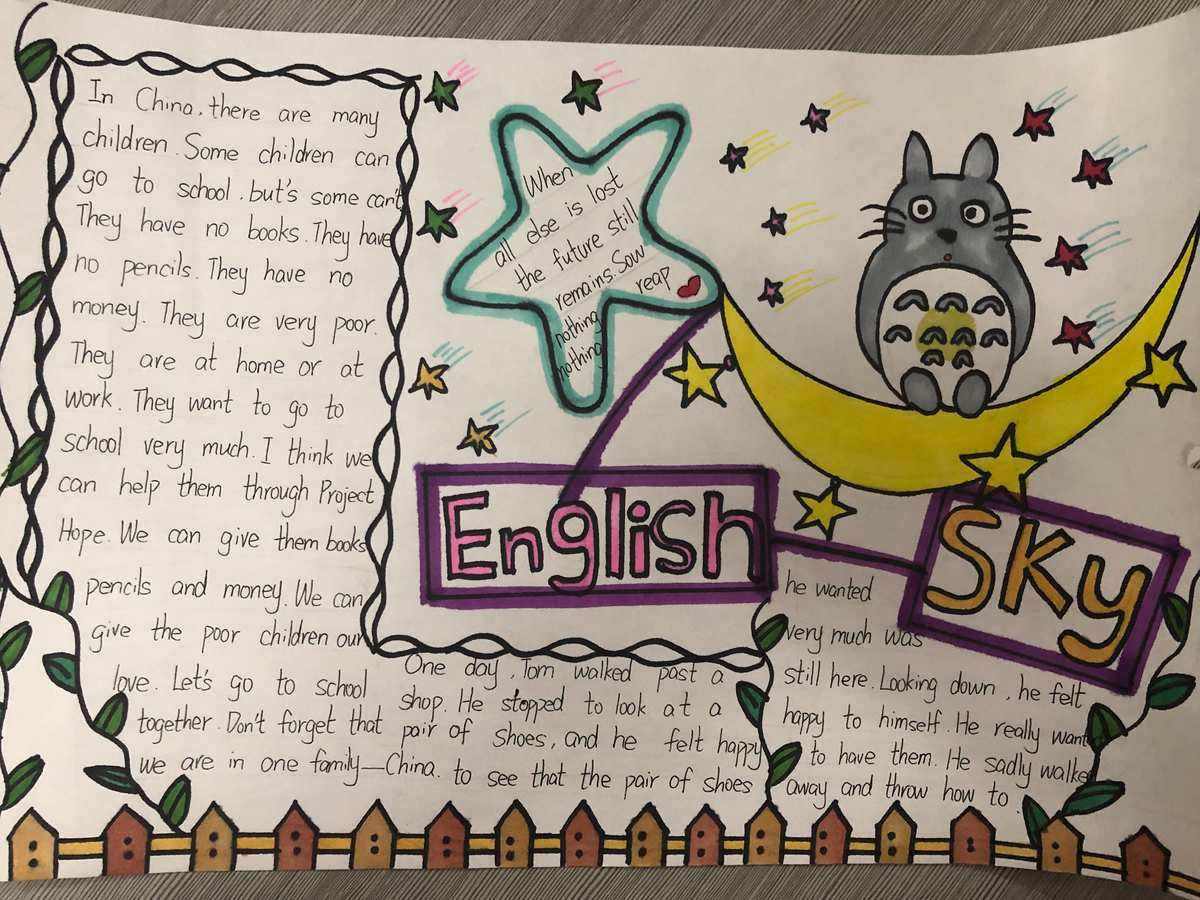 In China, there are many
children. Some children can
go to school, but's some can't
They have no books. They have
no pencils. They have no
money. They are very poor.
They are at home or at
work. They want to go to
school very much. I think we
can help them through Project
Hope. We can give them books
pencils and money. We can
give the poor children our
love. Let's go to school
together. Don't forget that
we are in one family—China.
When
all else is lost
the future still
remains. Sow
nothing reap
nothing
English
Sky
One day, Tom walked past a
shop. He stopped to look at a
pair of shoes, and he felt happy
to see that the pair of shoes
he wanted
very much was
still here. Looking down, he felt
happy to himself. He really want
to have them. He sadly walke
away and throw how to.